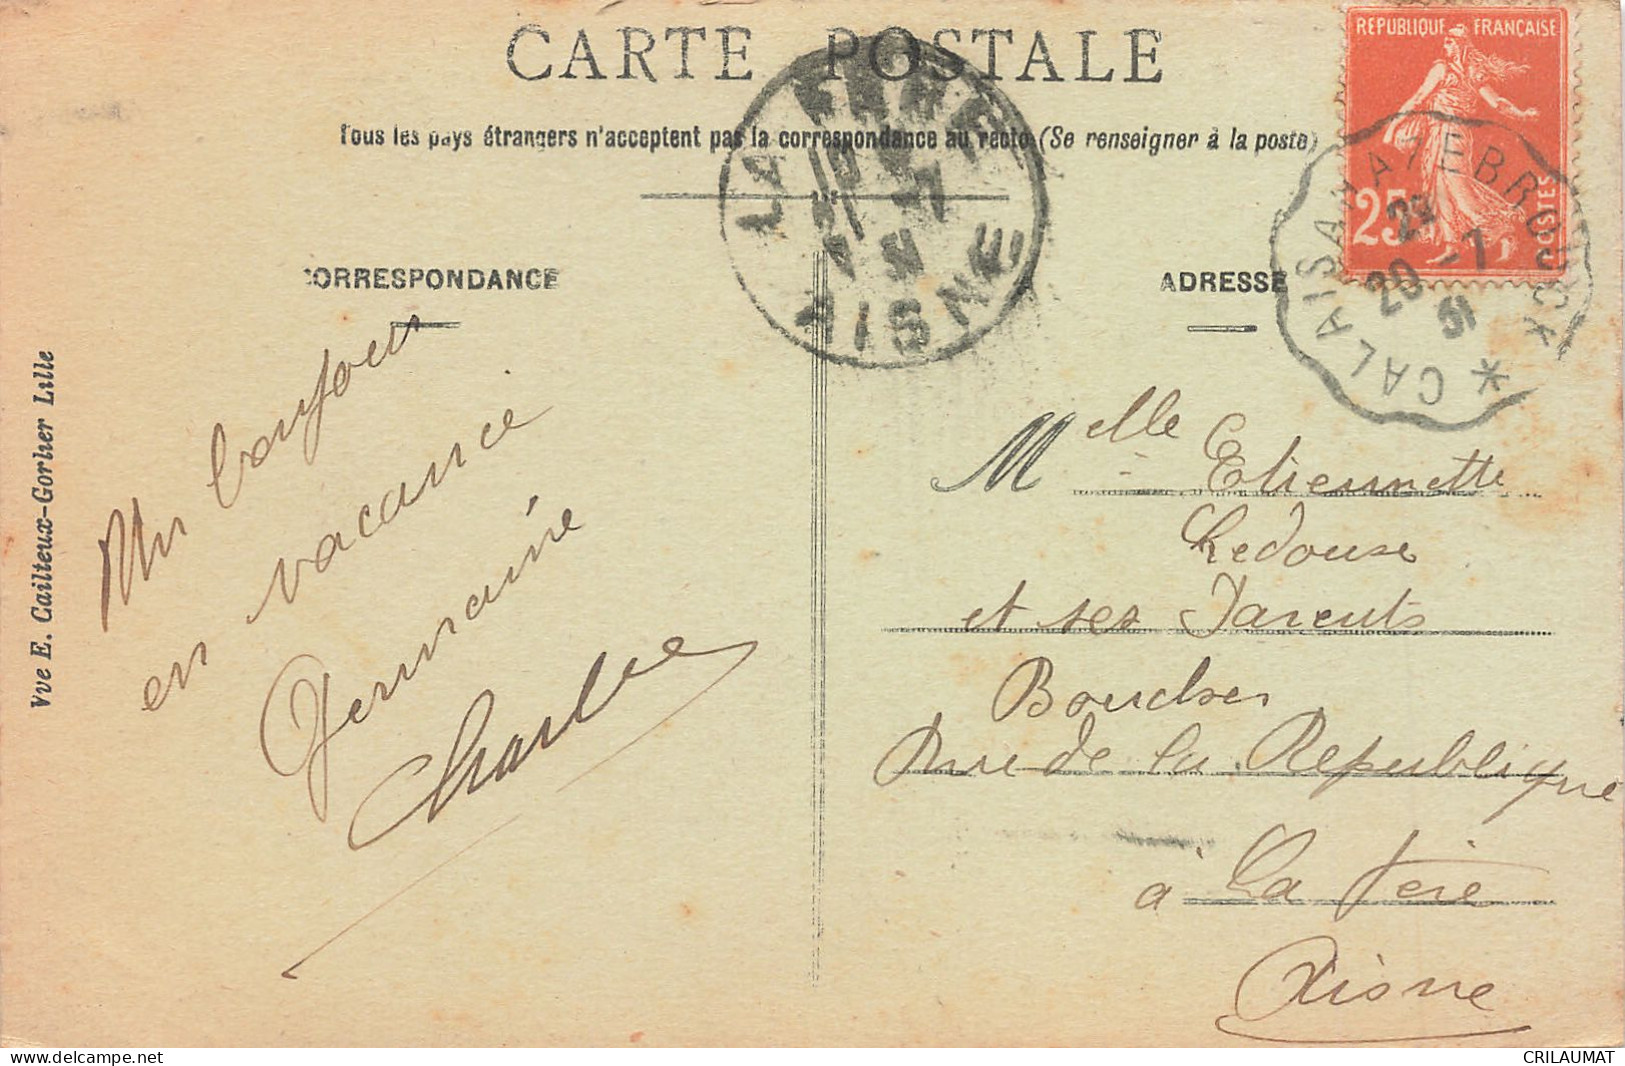 CARTE POSTALE
Tous les pays étrangers n'acceptent pas la correspondance au recto (Se renseigner à la poste)
REPUBLIQUE FRANÇAISE
25
POSTES
LA FERE
AISNE
CALAIS A HAZEBROUCK *
20 -7
31
CORRESPONDANCE
ADRESSE
Vve E. Cailteux-Gorlier Lille
Un bonjour
en vacance
Germaine
Charles
Melle Etiennette
Ledouse
et ses Parents
Boucher
Rue de la Republique
à La Fère
Aisne
CRILAUMAT